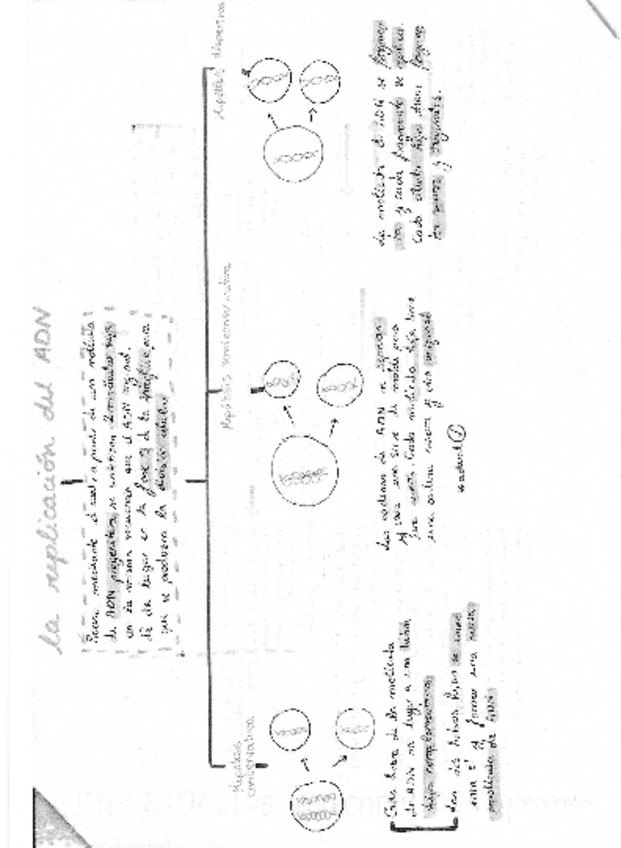 la replicación del ADN
Proceso mediante el cual, a partir de una molécula
de ADN progenitora se sintetizan 2 moléculas hijas
con la misma secuencia que el ADN original.
de lugar en la fase S de la interfase, para
que se produzca la división celular
Hipótesis
conservativa
Hipótesis semiconservativa
Hipótesis dispersiva
Cada hebra de la molécula
de ADN da lugar a una hebra
hija complementaria
Las dos hebras hijas se unen
entre sí y forman una nueva
molécula de ADN
Las cadenas de ADN se separan
y cada una sirve de molde para
Cada molécula hija tiene
una cadena nueva y otra original
La molécula de ADN se fragmen
ta y cada fragmento se replica.
Cada célula hija tiene fragmen
tos nuevos y originales.